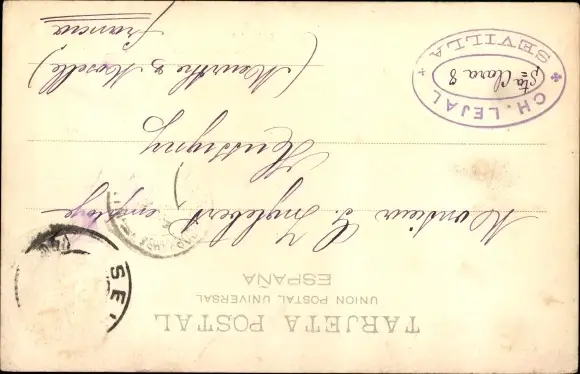 TARJETA POSTAL
UNION POSTAL UNIVERSAL
ESPAÑA
Monsieur G. Inglebert employé
(Meurthe & Moselle)
Francia
CH. LEJAL
Sta Clara 8
SEVILLA
SE